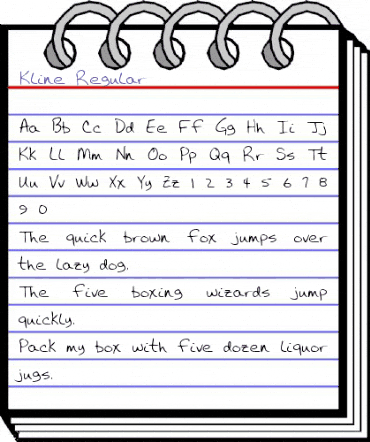 Kline Regular
Aa Bb Cc Dd Ee Ff Gg Hh Ii Jj
Kk Ll Mm Nn Oo Pp Qq Rr Ss Tt
Uu Vv Ww Xx Yy Zz 1 2 3 4 5 6 7 8
9 0
The quick brown fox jumps over
the lazy dog.
The five boxing wizards jump
quickly.
Pack my box with five dozen liquor
jugs.